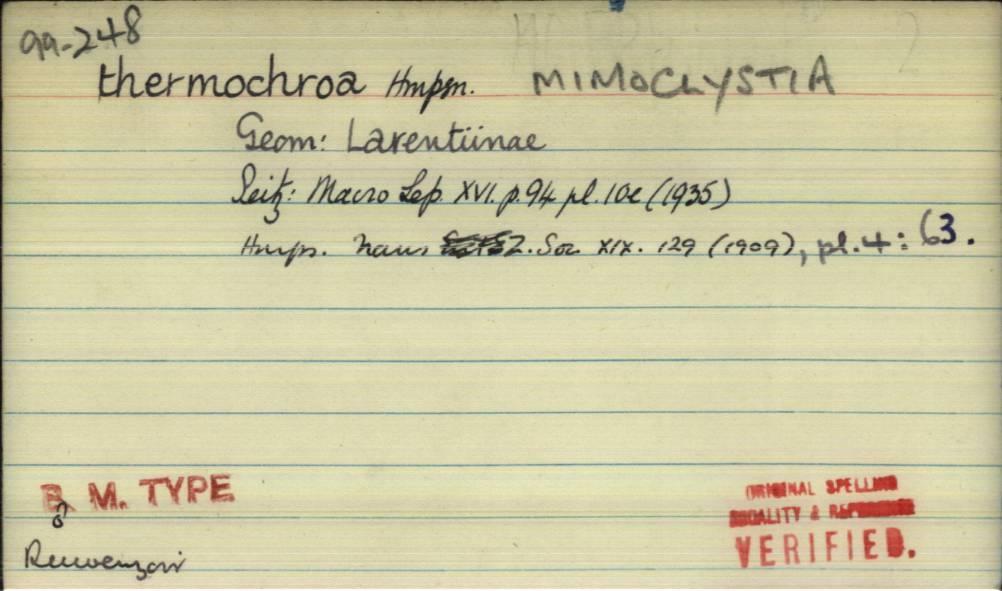 99-248
thermochroa Hmpsn. MIMOCLYSTIA
Geom: Larentiinae
Seitz: Macro Lep. XVI. p. 94 pl. 10e (1935)
Hmps. Trans Z. Soc XIX. 129 (1909), pl. 4: 63.
B. M. TYPE
♂
Ruwenzori
ORIGINAL SPELLING
LOCALITY & REFERENCE
VERIFIED.